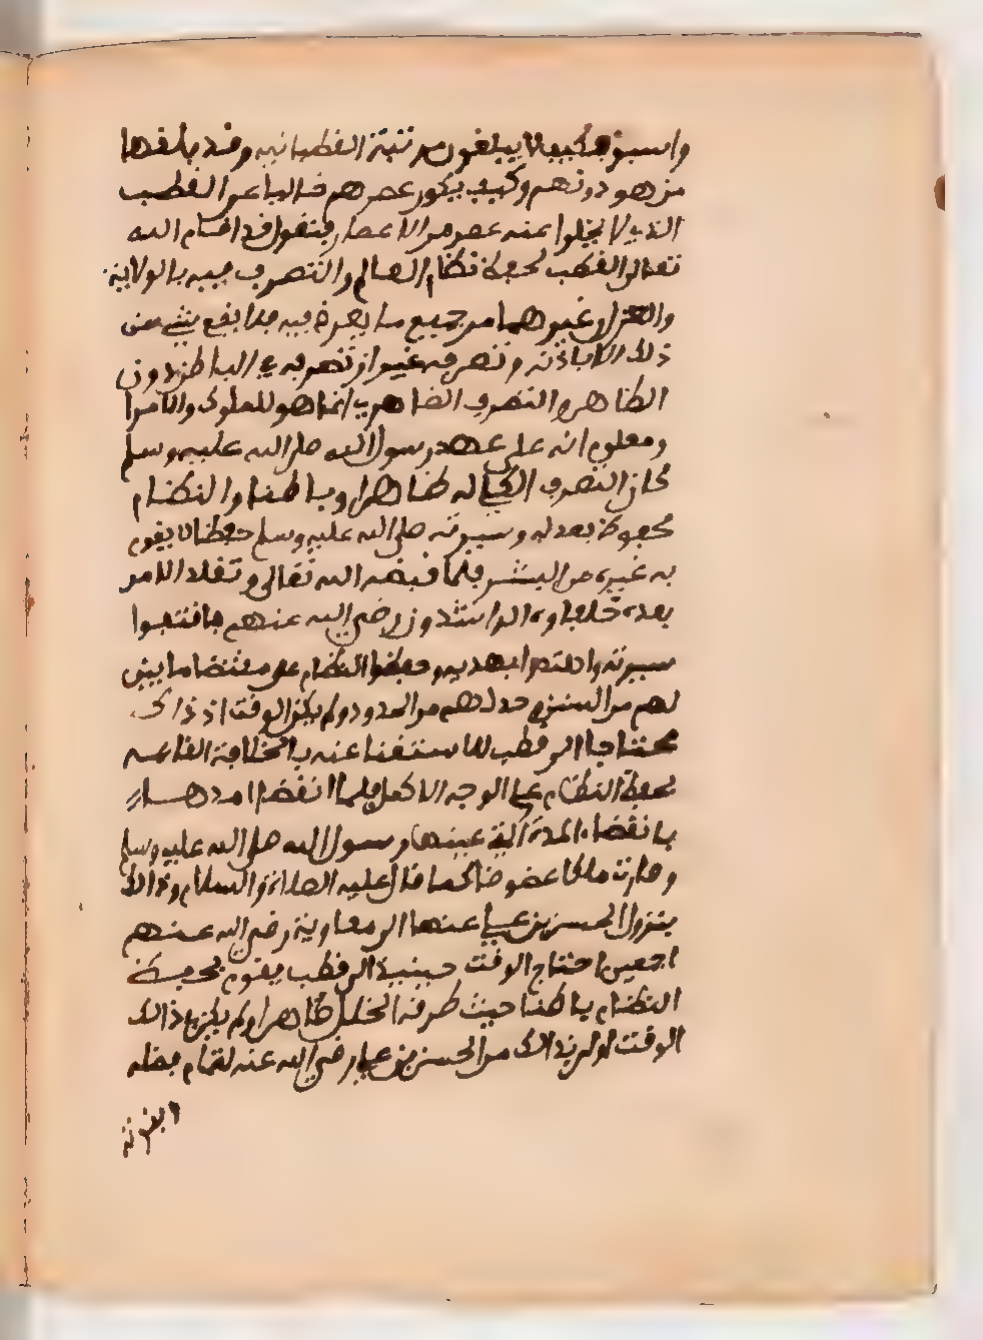 واسبق فكيف لا يبلغون مرتبة القطبانية وقد بلغها
من هو دونهم وكيف يكون عصرهم خاليا عن القطب
الذي لا يخلوا عنه عصر من الاعصار فنقول قد اقام الله
تعالى القطب لحفظ نظام العالم والتصرف فيه بالولاية
والعزل وغيرهما من جميع ما يعرض فيه فلا يقع شيء من
ذلك الا باذنه وتصرفه غير ان تصرفه في الباطن دون
الظاهر والتصرف الظاهر انما هو للملوك والامرا
ومعلوم انه على عهد رسول الله صلى الله عليه وسلم
كان التصرف الكلي له ظاهرا وباطنا والنظام
محفوظ بعدله وسيرته صلى الله عليه وسلم حفظا لا يقوم
به غيره من البشر فلما قبضه الله تعالى وتقلد الامر
بعده خلفاوه الراشدون رضي الله عنهم فاقتفوا
سيرته واهتدوا بهديه وحفظوا النظام على مقتضا ما بين
لهم من السنن وحد لهم من الحدود ولم يكن الوقت اذ ذاك
محتاجا الى قطب للاستغنا عنه بالخلافة القائمة
بحفظ النظام على الوجه الاكمل فلما انقضى امدها
بانقضاء المدة التي عينها رسول الله صلى الله عليه وسلم
وصارت ملكا عضوضا كما قال عليه الصلاة والسلام وذالك
بنزول الحسن بن علي عنها الى معاوية رضي الله عنهم
اجمعين احتاج الوقت حينئذ الى قطب يقوم بحفظ
النظام باطنا حيث طرقه الخلل ظاهرا ولم يكن في ذالك
الوقت اولى بذالك من الحسن بن علي رضي الله عنه لتمام فضله